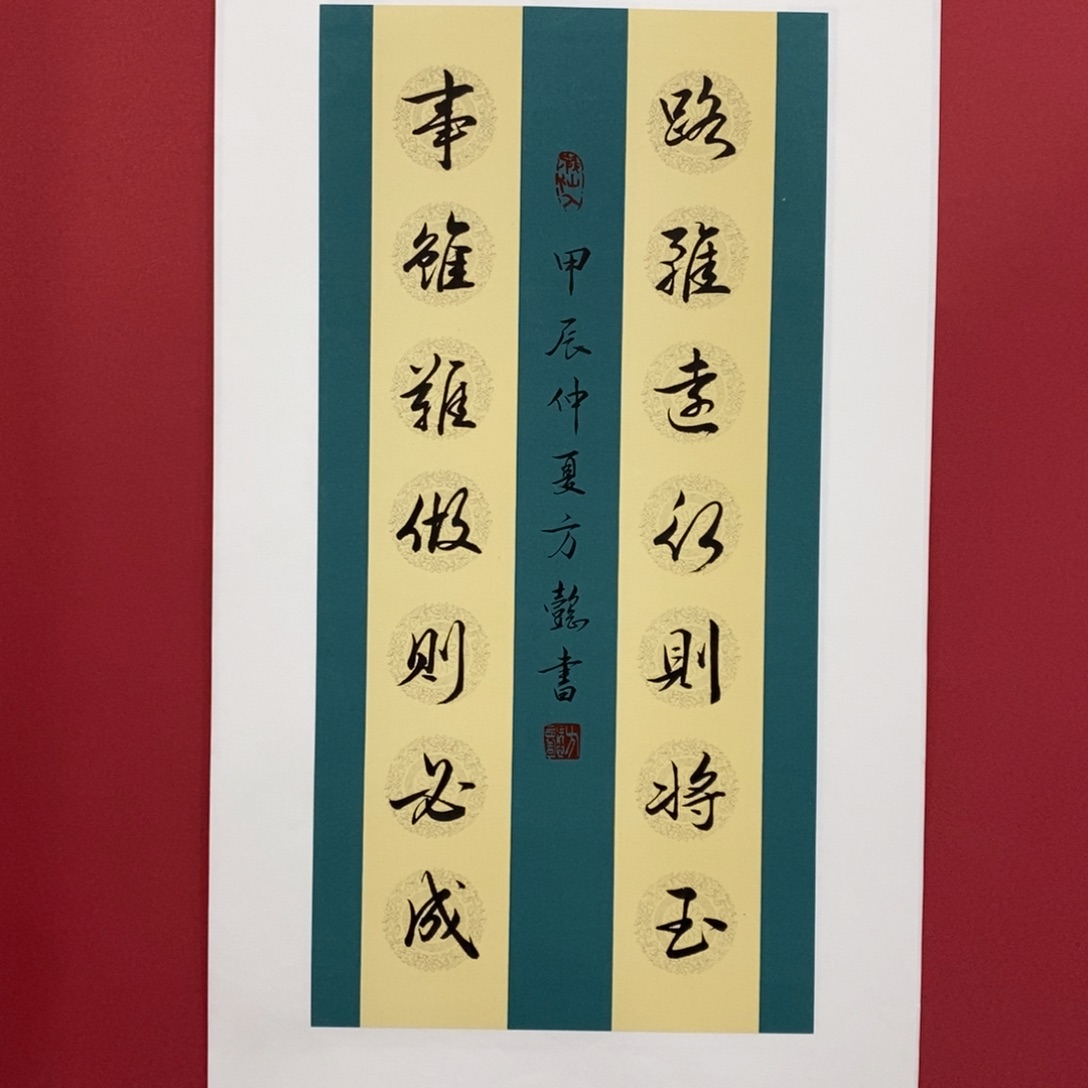 路雖遠行則將至
事雖難做則必成
甲辰仲夏方懿書